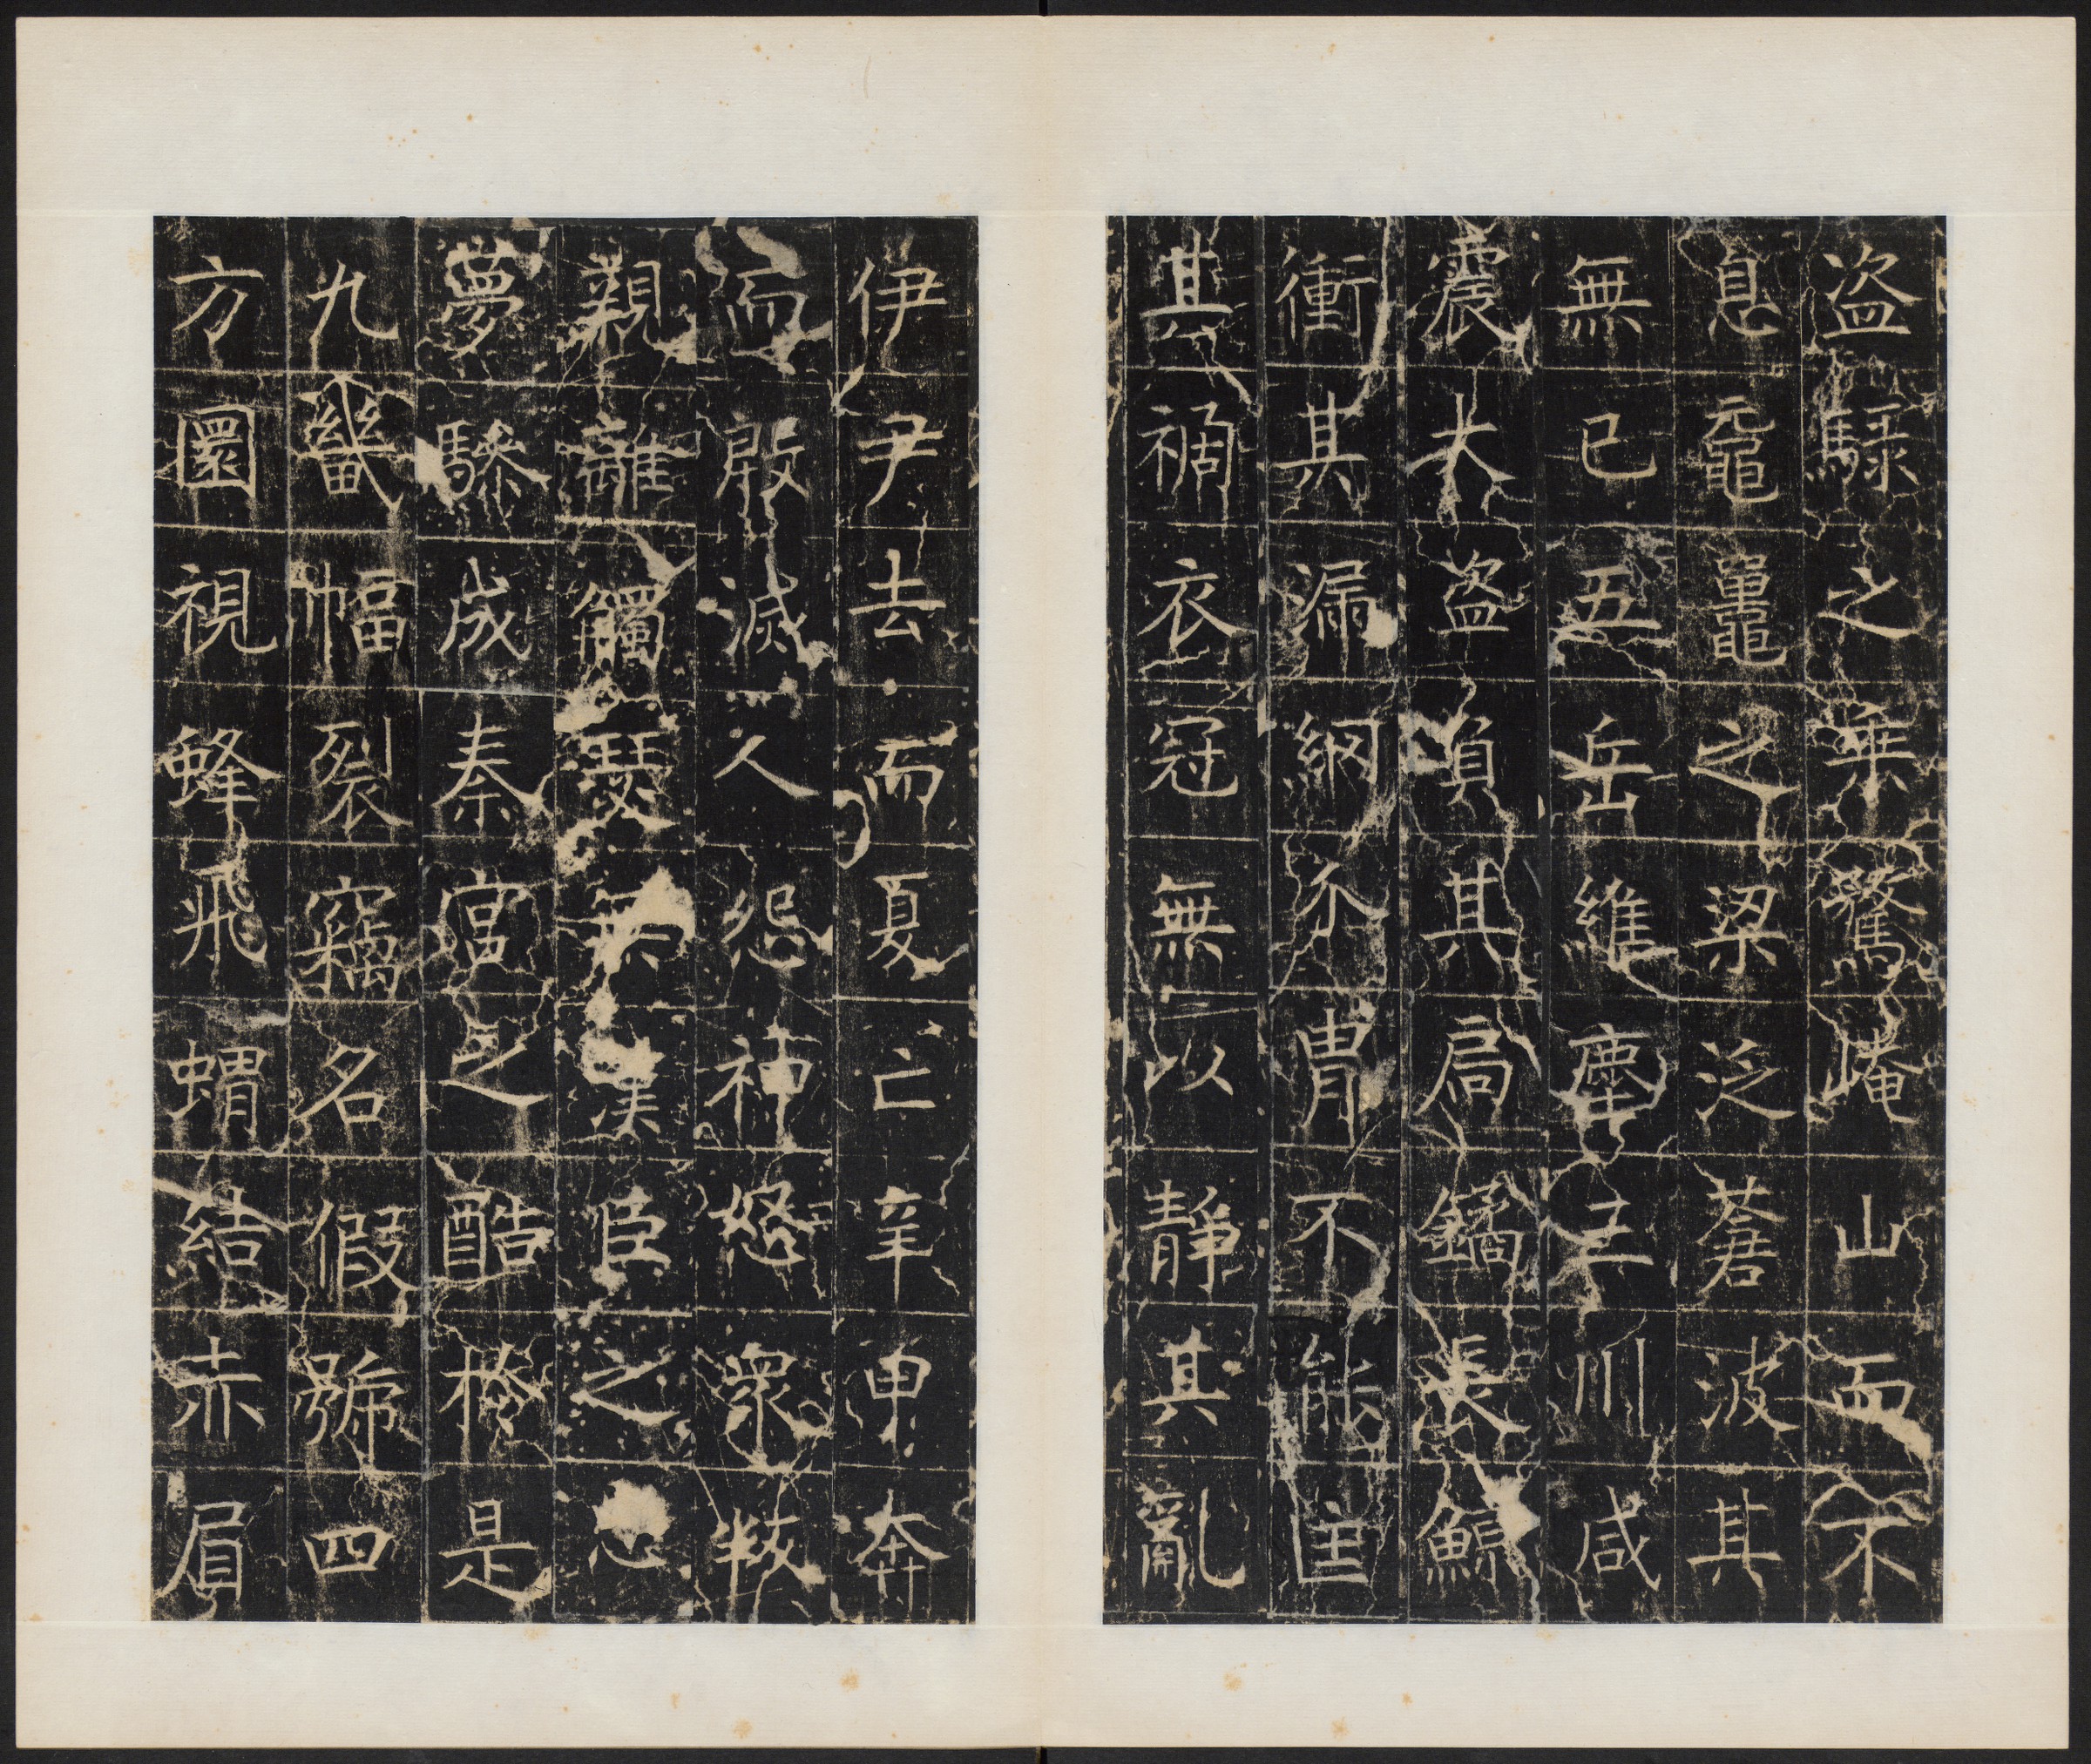 盗騄之乘驚崦山而不
息黿鼉之梁泛蒼波其
無已五岳維塵三川咸
震大盗負其扃鐍長鯨
衝其漏網介冑不能匡
其禍衣冠無以靜其亂
伊尹去而夏亡辛甲奔
而殷滅人怨神怒衆叛
親離觸瑟無漢臣之忠
夢驂成秦宮之酷於是
九畿幅裂竊名假號四
方圜視蜂飛蝟結赤眉